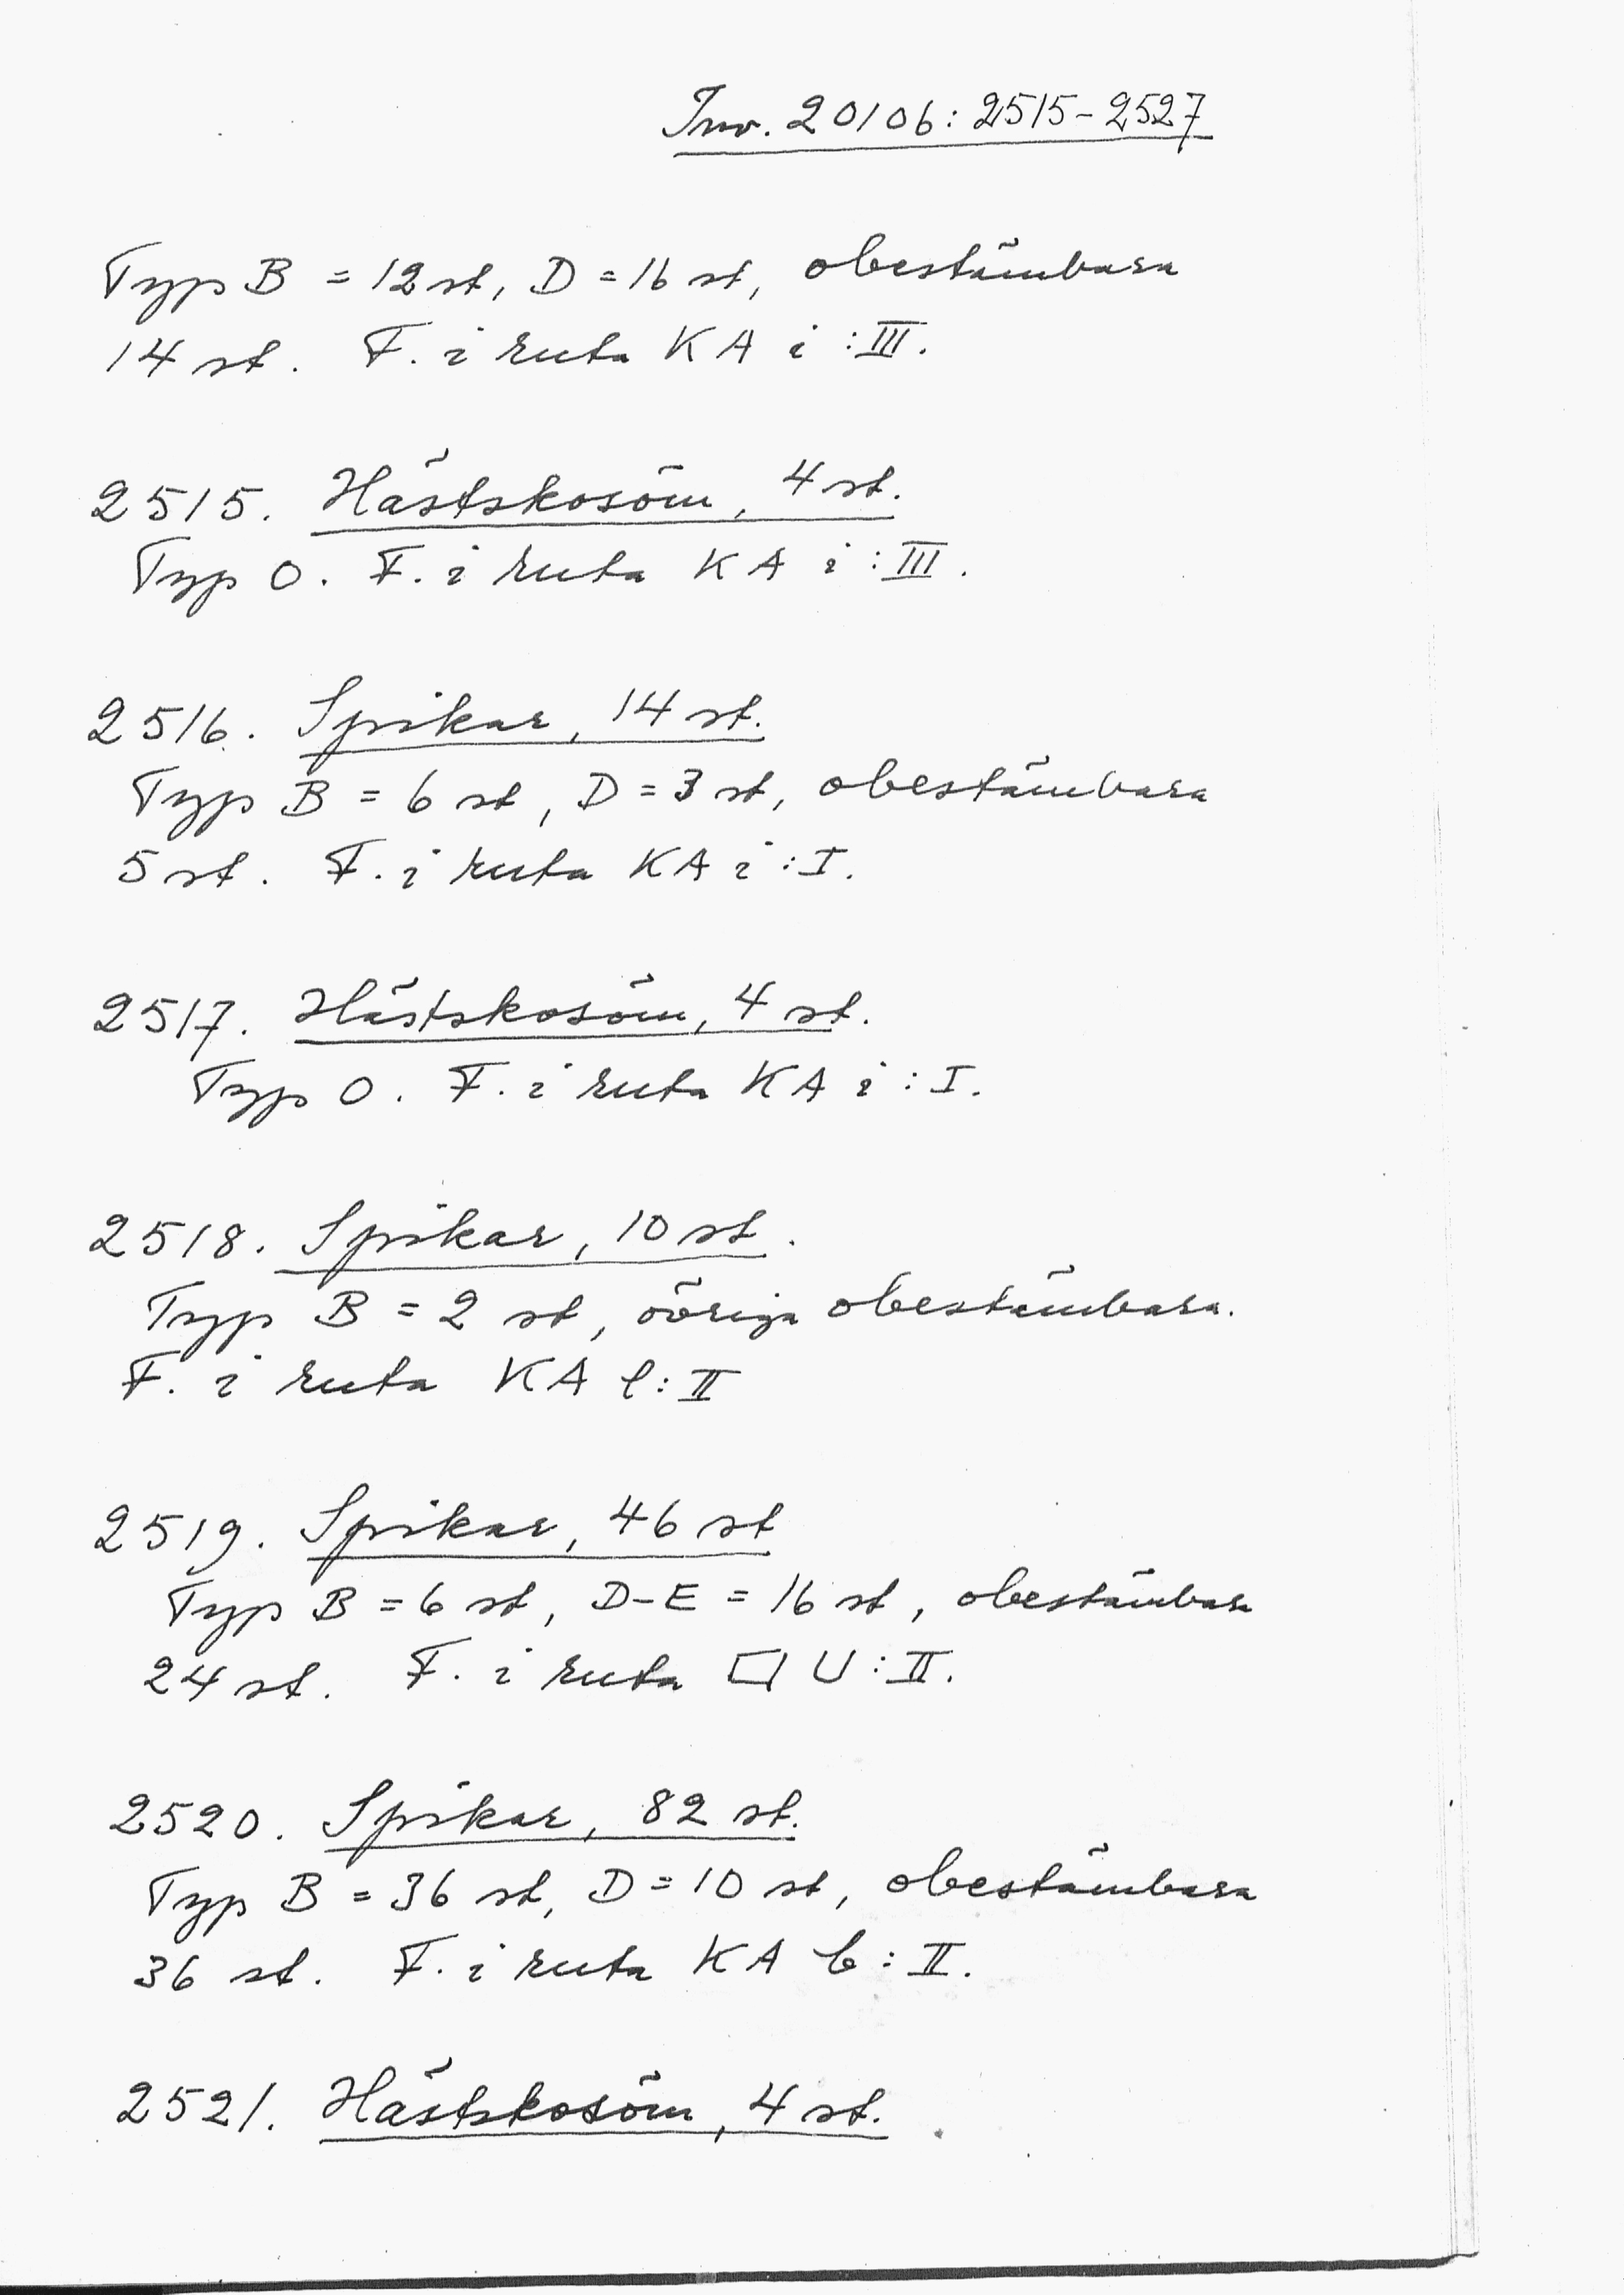 Inv. 20106:2515-2527
Typ B = 12 st, D = 16 st, obestämbara
14 st. F. i ruta KA i:III.
2515. Hästskosöm, 4 st.
Typ O. F. i ruta KA i:III.
2516. Spikar, 14 st.
Typ B = 6 st, D = 3 st, obestämbara
5 st. F. i ruta KA i:I.
2517. Hästskosöm, 4 st.
Typ O. F. i ruta KA i:I.
2518. Spikar, 10 st.
Typ B = 2 st, övriga obestämbara.
F. i ruta KA l:II
2519. Spikar, 46 st
Typ B = 6 st, D-E = 16 st, obestämbara
24 st. F. i ruta □ U:II.
2520. Spikar, 82 st.
Typ B = 36 st, D = 10 st, obestämbara
36 st. F. i ruta KA b:II.
2521. Hästskosöm, 4 st.